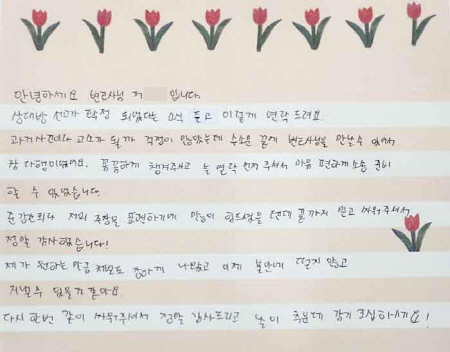 안녕하세요 변호사님 저 입니다.
상대방 선고가 확정 되었다는 소식 듣고 이렇게 연락 드려요.
과거사건이라 고소가 될까 걱정이 많았는데 수소문 끝에 변호사님을 만날수 있어서
참 다행이었어요. 꼼꼼하게 챙겨주시고 늘 연락 먼저 주셔서 마음 편하게 소송 준비
할 수 있었습니다.
저의 주장을 표현하기에 많이 힘드셨을 텐데 끝까지 믿고 싸워주셔서
정말 감사했습니다!
제가 원하는 만큼 나왔고 이제 불안에 떨지 않고
지낼수 있을거 같아요.
다시 한번 같이 싸워주셔서 정말 감사드리고 날이 추운데 감기 조심하세요!